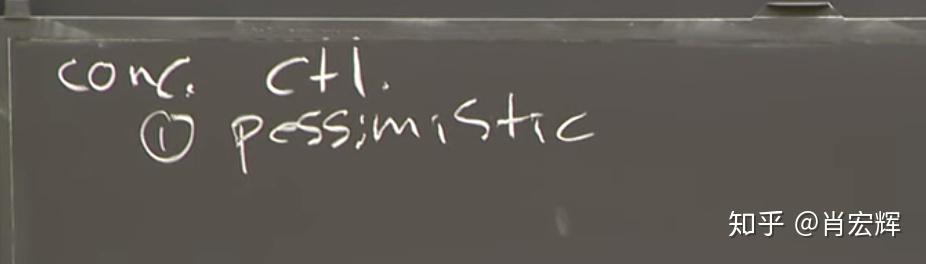 conc. ctl.
① pessimistic
知乎 @肖宏辉